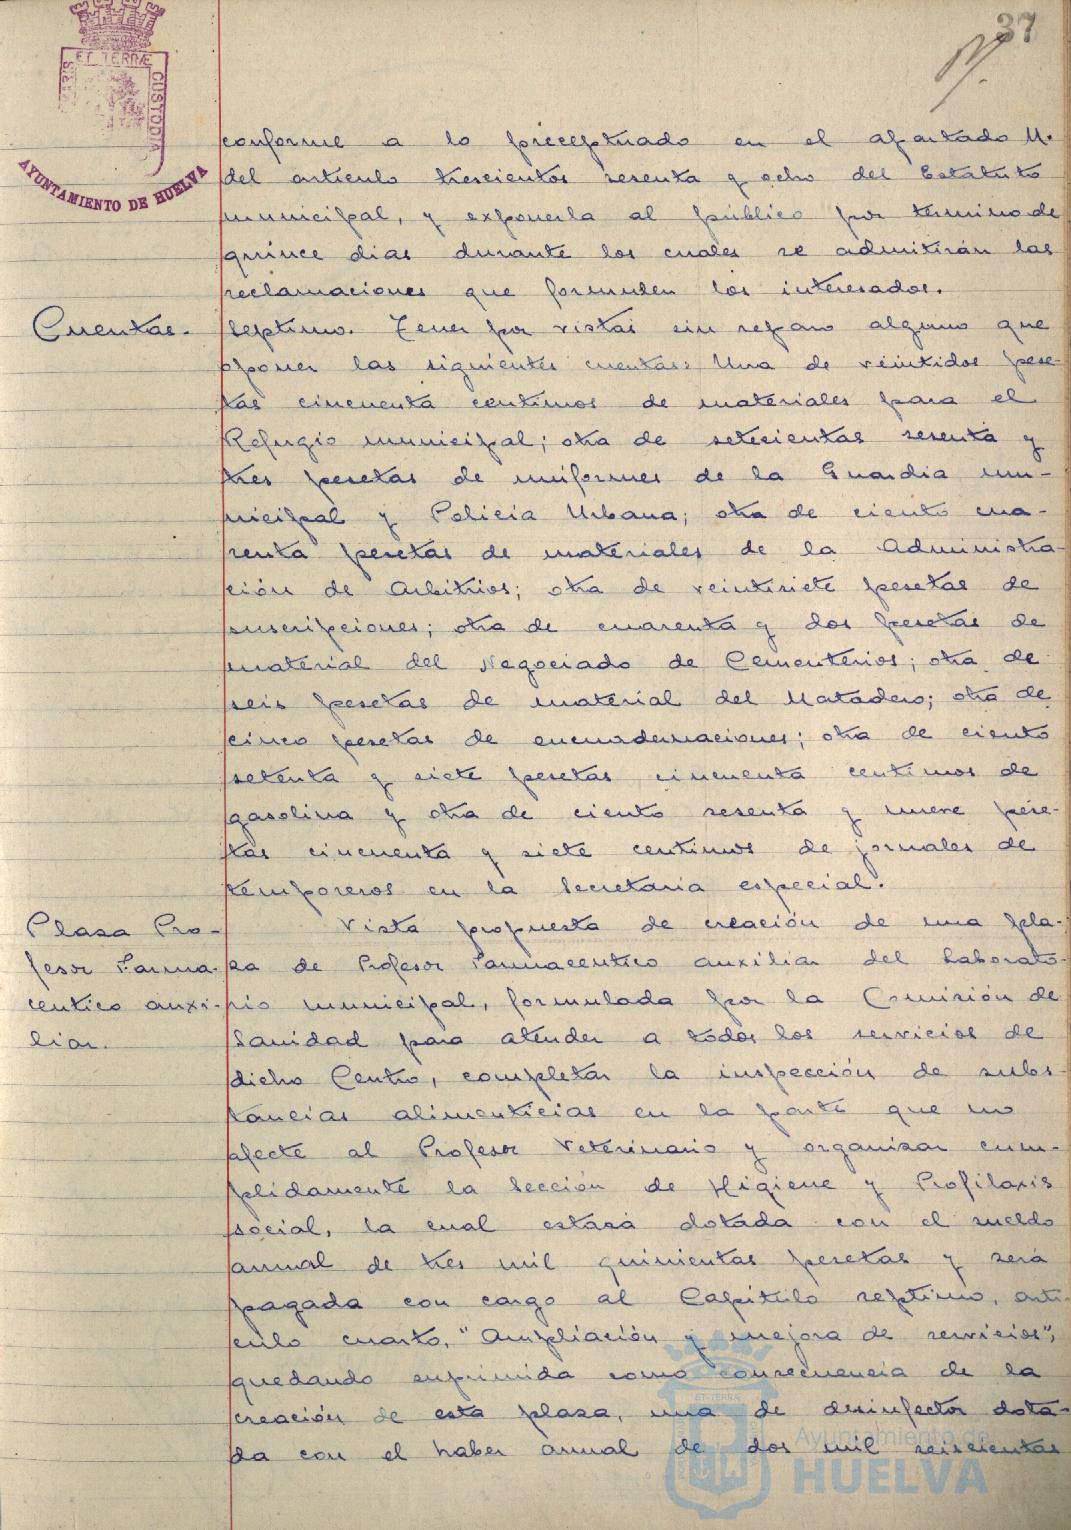 37
ET TERRÆ
CUSTODIA
AYUNTAMIENTO DE HUELVA
conforme a lo preceptuado en el apartado M.
del articulo trescientos sesenta y ocho del Estatuto
municipal, y exponerla al público por termino de
quince dias durante los cuales se admitirán las
reclamaciones que formulen los interesados.
Cuentas.
Septimo. Tener por vistas sin reparo alguno que
oponer las siguientes cuentas: Una de veintidos pese-
tas cincuenta centimos de materiales para el
Refugio municipal; otra de setecientas sesenta y
tres pesetas de uniformes de la Guardia mu-
nicipal y Policía Urbana; otra de ciento cua-
renta pesetas de materiales de la Administra-
ción de Arbitrios; otra de veintisiete pesetas de
suscripciones; otra de cuarenta y dos pesetas de
material del Negociado de Cementerios; otra de
seis pesetas de material del Matadero; otra de
cinco pesetas de encuadernaciones; otra de ciento
setenta y siete pesetas cincuenta centimos de
gasolina y otra de ciento sesenta y nueve pese-
tas cincuenta y siete centimos de jornales de
temporeros en la Secretaría especial.
Plasa Pro-
fesor Farma-
ceutico auxi-
liar.
Vista propuesta de creación de una pla-
za de Profesor Farmaceutico auxiliar del Laborato-
rio municipal, formulada por la Comisión de
Sanidad para atender a todos los servicios de
dicho Centro, completar la inspección de subs-
tancias alimenticias en la parte que no
afecte al Profesor Veterinario y organizar cum-
plidamente la Sección de Higiene y Profilaxis
social, la cual estará dotada con el sueldo
anual de tres mil quinientas pesetas y será
pagada con cargo al Capitulo septimo, arti-
culo cuarto, "Ampliación y mejora de servicios",
quedando suprimida como consecuencia de la
creación de esta plaza, una de desinfector dota-
da con el haber anual de dos mil seiscientas
Ayuntamiento de
HUELVA